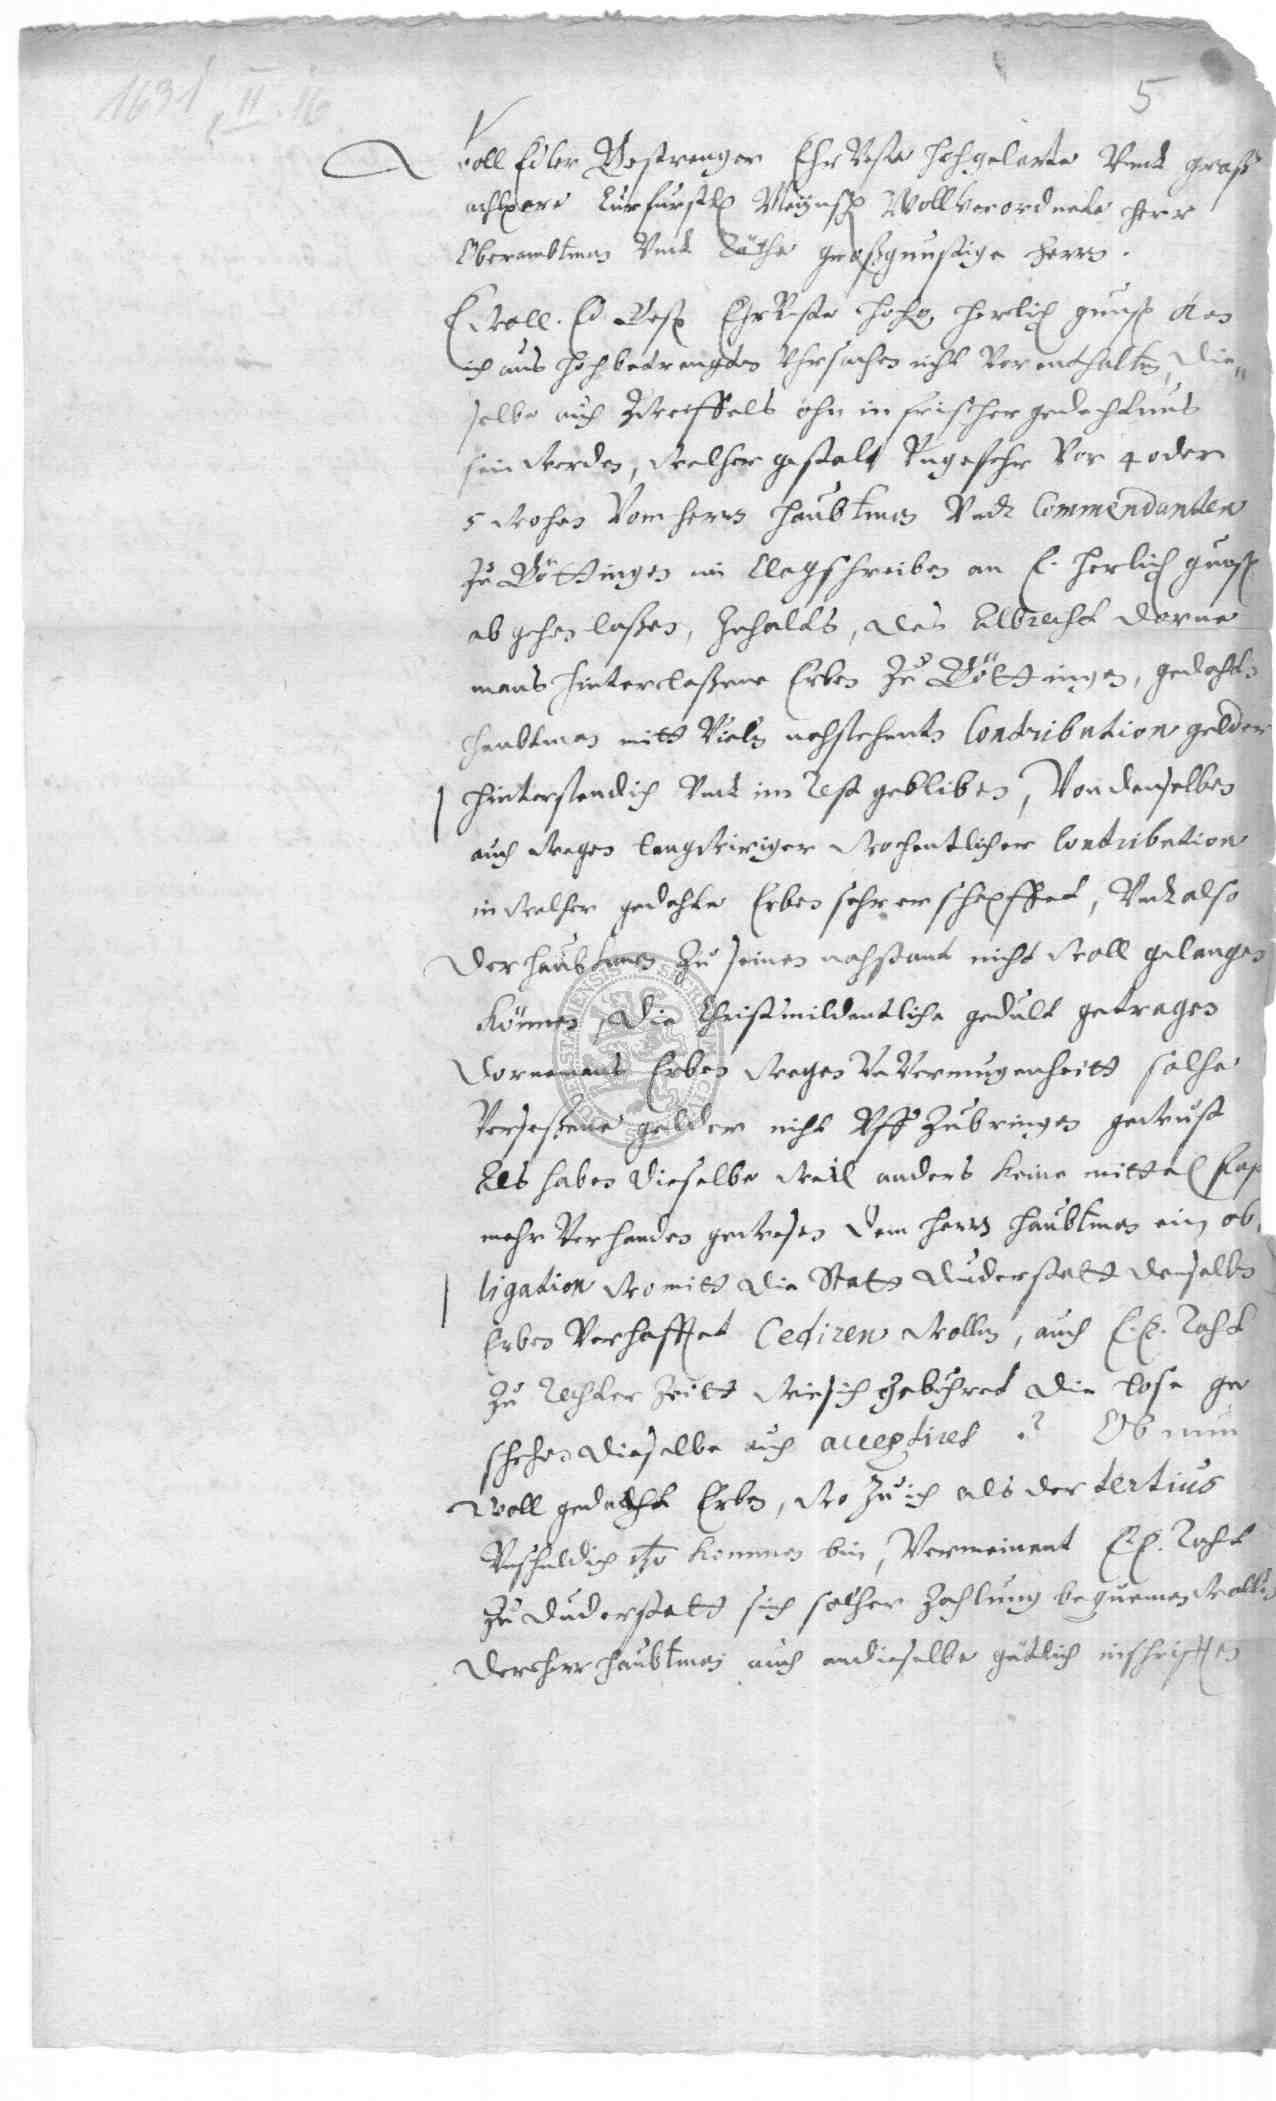 1631 II. 16
5
Woll Edler Gestrenger EhrVeste hochgelarte Vndt groß
achtpare Curfurstl Meyntz Wollverordnete Herr
Oberambtman Vndt Räthe großgunstige Herrn.
E Woll. Ed. Gest EhrVeste hochg. herlich gunst kan
ich aus hochbedrengten Vhrsachen nicht Vorenthalten, die„
selbe auch Zweiffels ohn in frischer gedechtnus
sein werden, welcher gestalt Vngefehr Vor 4 oder
5 wochen Vom herrn Haubtman Vndt Commendanten
Zu Göttingen ein Clagschreiben an E. herlich gunst
abgehen laßen, Inhalts, das Albrecht Dorne
mans hinterlaßene Erben Zu Göttingen, gedachten
Haubtman mitt Vielen nachstehenten Contribution gelder
hinterstendich Vndt im Rest geblieben, Von denselben
auch wegen langwiriger wochentlicher Contribution
in welcher gedachte Erben sehr erschepffet, Vndt also
der Haubtman Zu seinen nachstant nicht woll gelangen
können, die Christmildentliche gedult getragen
Dornemans Erben wegen VnVermugenheitt solche
Verseßene gelder nicht Vff Zubringen gewust
Als haben dieselbe weil anders keine mittel
mehr Verhanden gewesen dem herrn Haubtman ein ob„
ligation womitt die Statt Duderstatt denselben
Erben Verhafftet Cediren wollen, auch E.E. Raht
Zu rechter Zeitt wie sich gebühret die lose ge
schehen dieselbe auch acceptiret ? Ob nun
woll gedacht Erben, wo Zu ich als der tertius
Vnschuldich itzo kommen bin, Vermeinent E.E. Raht
Zu Duderstatt sich solcher Zahlung bequemen wollen
der herr Haubtman auch an dieselbe gütlich in schrifften